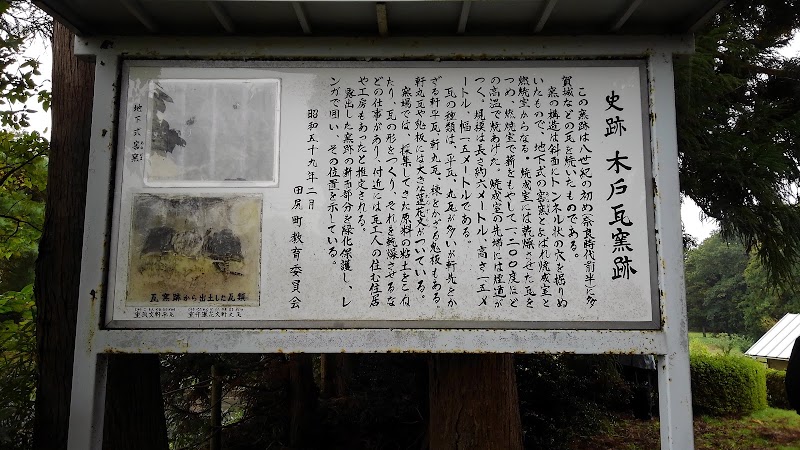 史跡 木戸瓦窯跡
この窯跡は八世紀の初め(奈良時代前半)に多
賀城などの瓦を焼いたものである。
窯の構造は斜面にトンネル状の穴を掘りぬ
いたもので、地下式の窖窯とよばれ焼成室と
燃焼室からなる。焼成室には乾燥させた瓦を
つめ、燃焼室で薪をもやして一、二〇〇度ほど
の高温で焼あげた。焼成室の先端には煙道が
つく、規模は長さ約六メートル、高さ一・五メ
ートル、幅一・五メートルである。
瓦の種類は、平瓦、丸瓦が多いが軒先をか
ざる軒平瓦、軒丸瓦、棟をかざる鬼板もある。
軒丸瓦や鬼板には大きな蓮花文がついている。
窯場では、採集してきた原料の粘土をこね
たり、瓦の形をつくり、それを乾燥させるな
どの仕事があり、付近には瓦工人の住む住居
や工房もあったと推定される。
露出した窯跡の断面部分を緑化保護し、レ
ンガで囲い、その位置を示している。
昭和五十九年二月
田尻町教育委員会
地下式窖窯
瓦窯跡から出土した瓦類